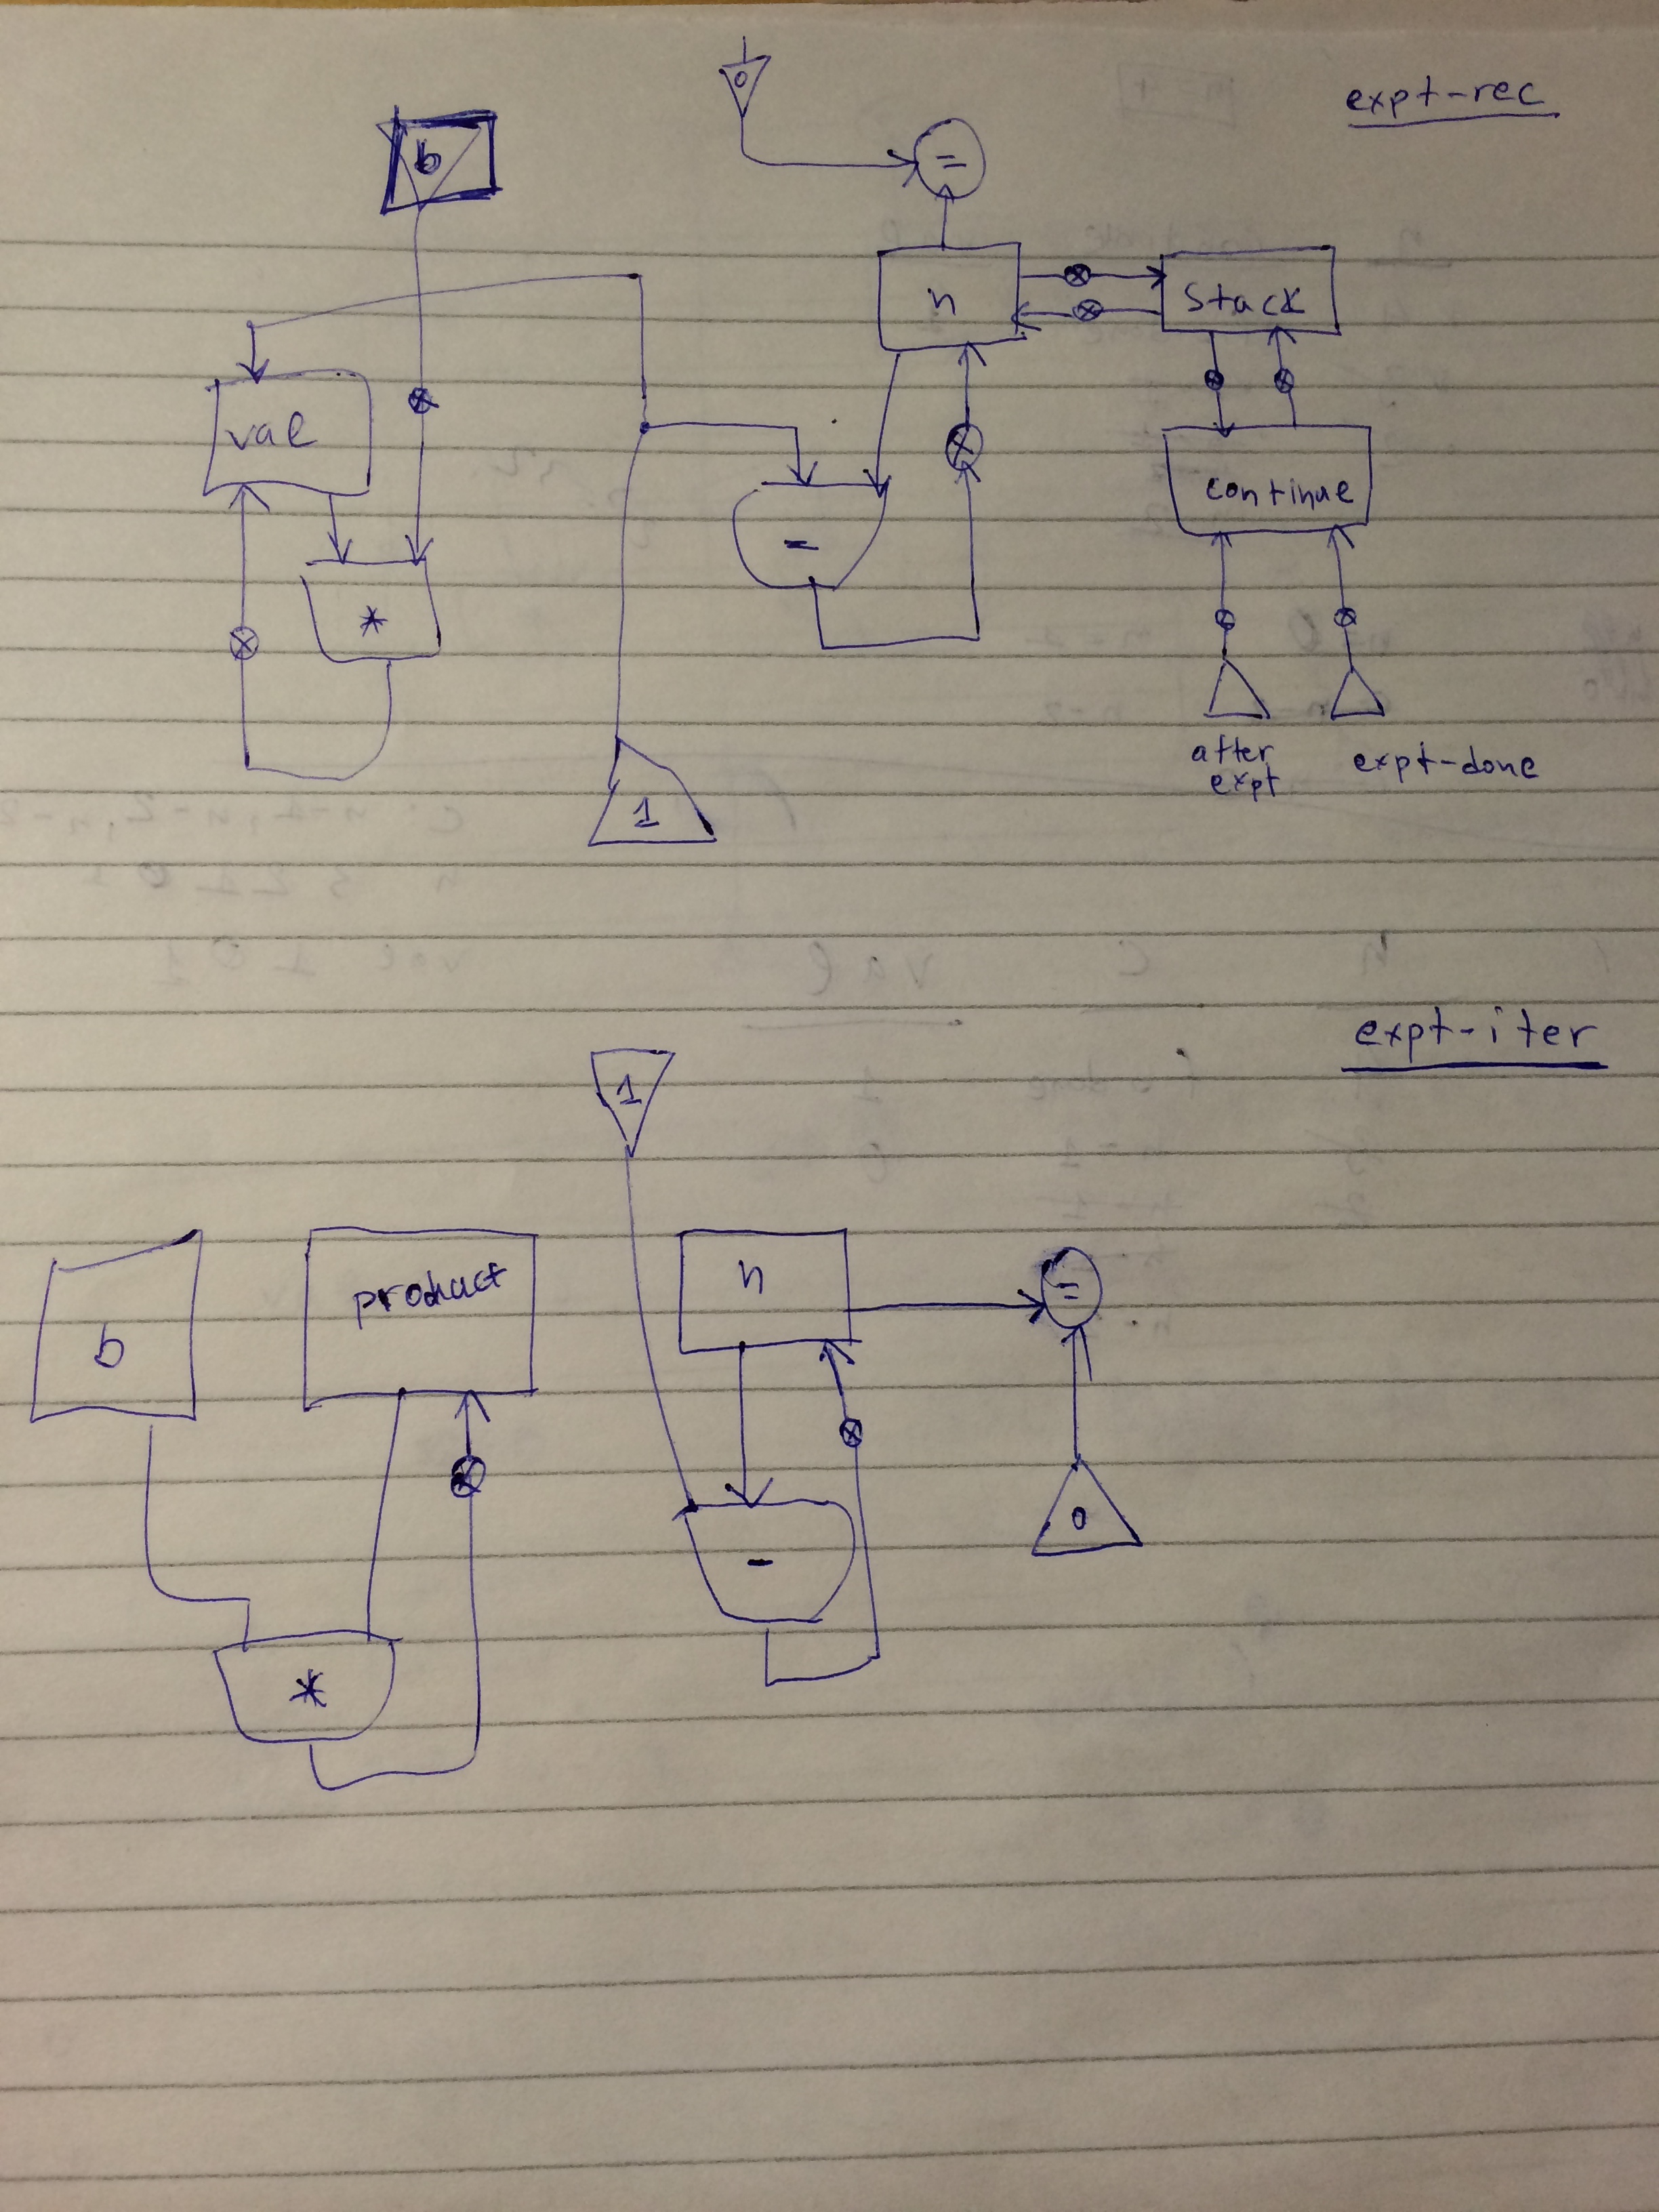 expt-rec
0
b
=
n
stack
val
continue
-
*
1
after
expt
expt-done
expt-iter
1
b
product
n
=
0
-
*